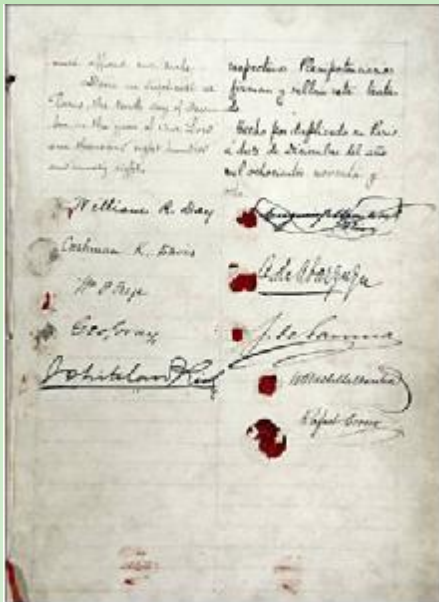 Done in duplicate at
Paris, the tenth day of Decem-
ber, in the year of Our Lord
one thousand eight hundred
and ninety eight.
William R. Day
Cushman K. Davis
Wm P. Frye
Geo. Gray
Whitelaw Reid
respectivos Plenipotenciarios
firman y sellan este trata-
do
Hecho por duplicado en Paris
á diez de Diciembre del año
mil ochocientos noventa y
ocho.
B. de Abarzuza
J. de Garnica
W R de Villa Urrutia
Rafael Cerero